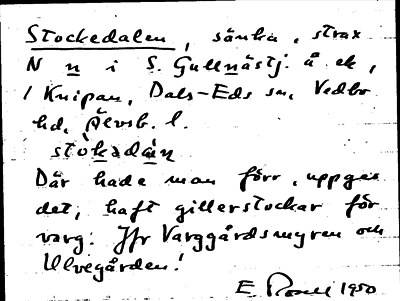 Stockedalen, sänka, strax
N n i S. Gullnästj. å ek,
1 Knipan, Dals-Eds sn, Vedbo
hd, Älvsb. l.
stòkədàn
Där hade man förr, uppges
det, haft gillerstockar för
varg. Jfr Varggårdsmyren och
Ulvegården!
E. 1950